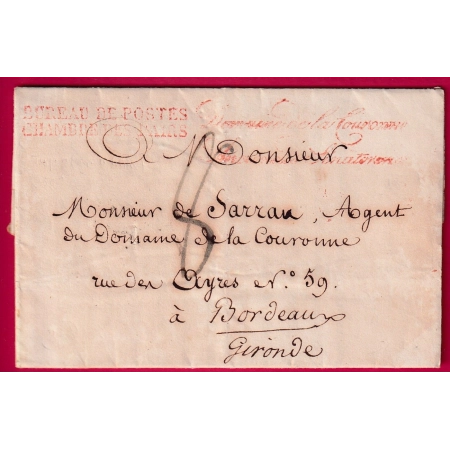 BUREAU DE POSTES
CHAMBRE DES PAIRS
Domaine de la Couronne
A Monsieur
8
Monsieur de Sarrau, Agent
du Domaine de la Couronne
rue des Ayres N.º 59.
à Bordeaux
Gironde